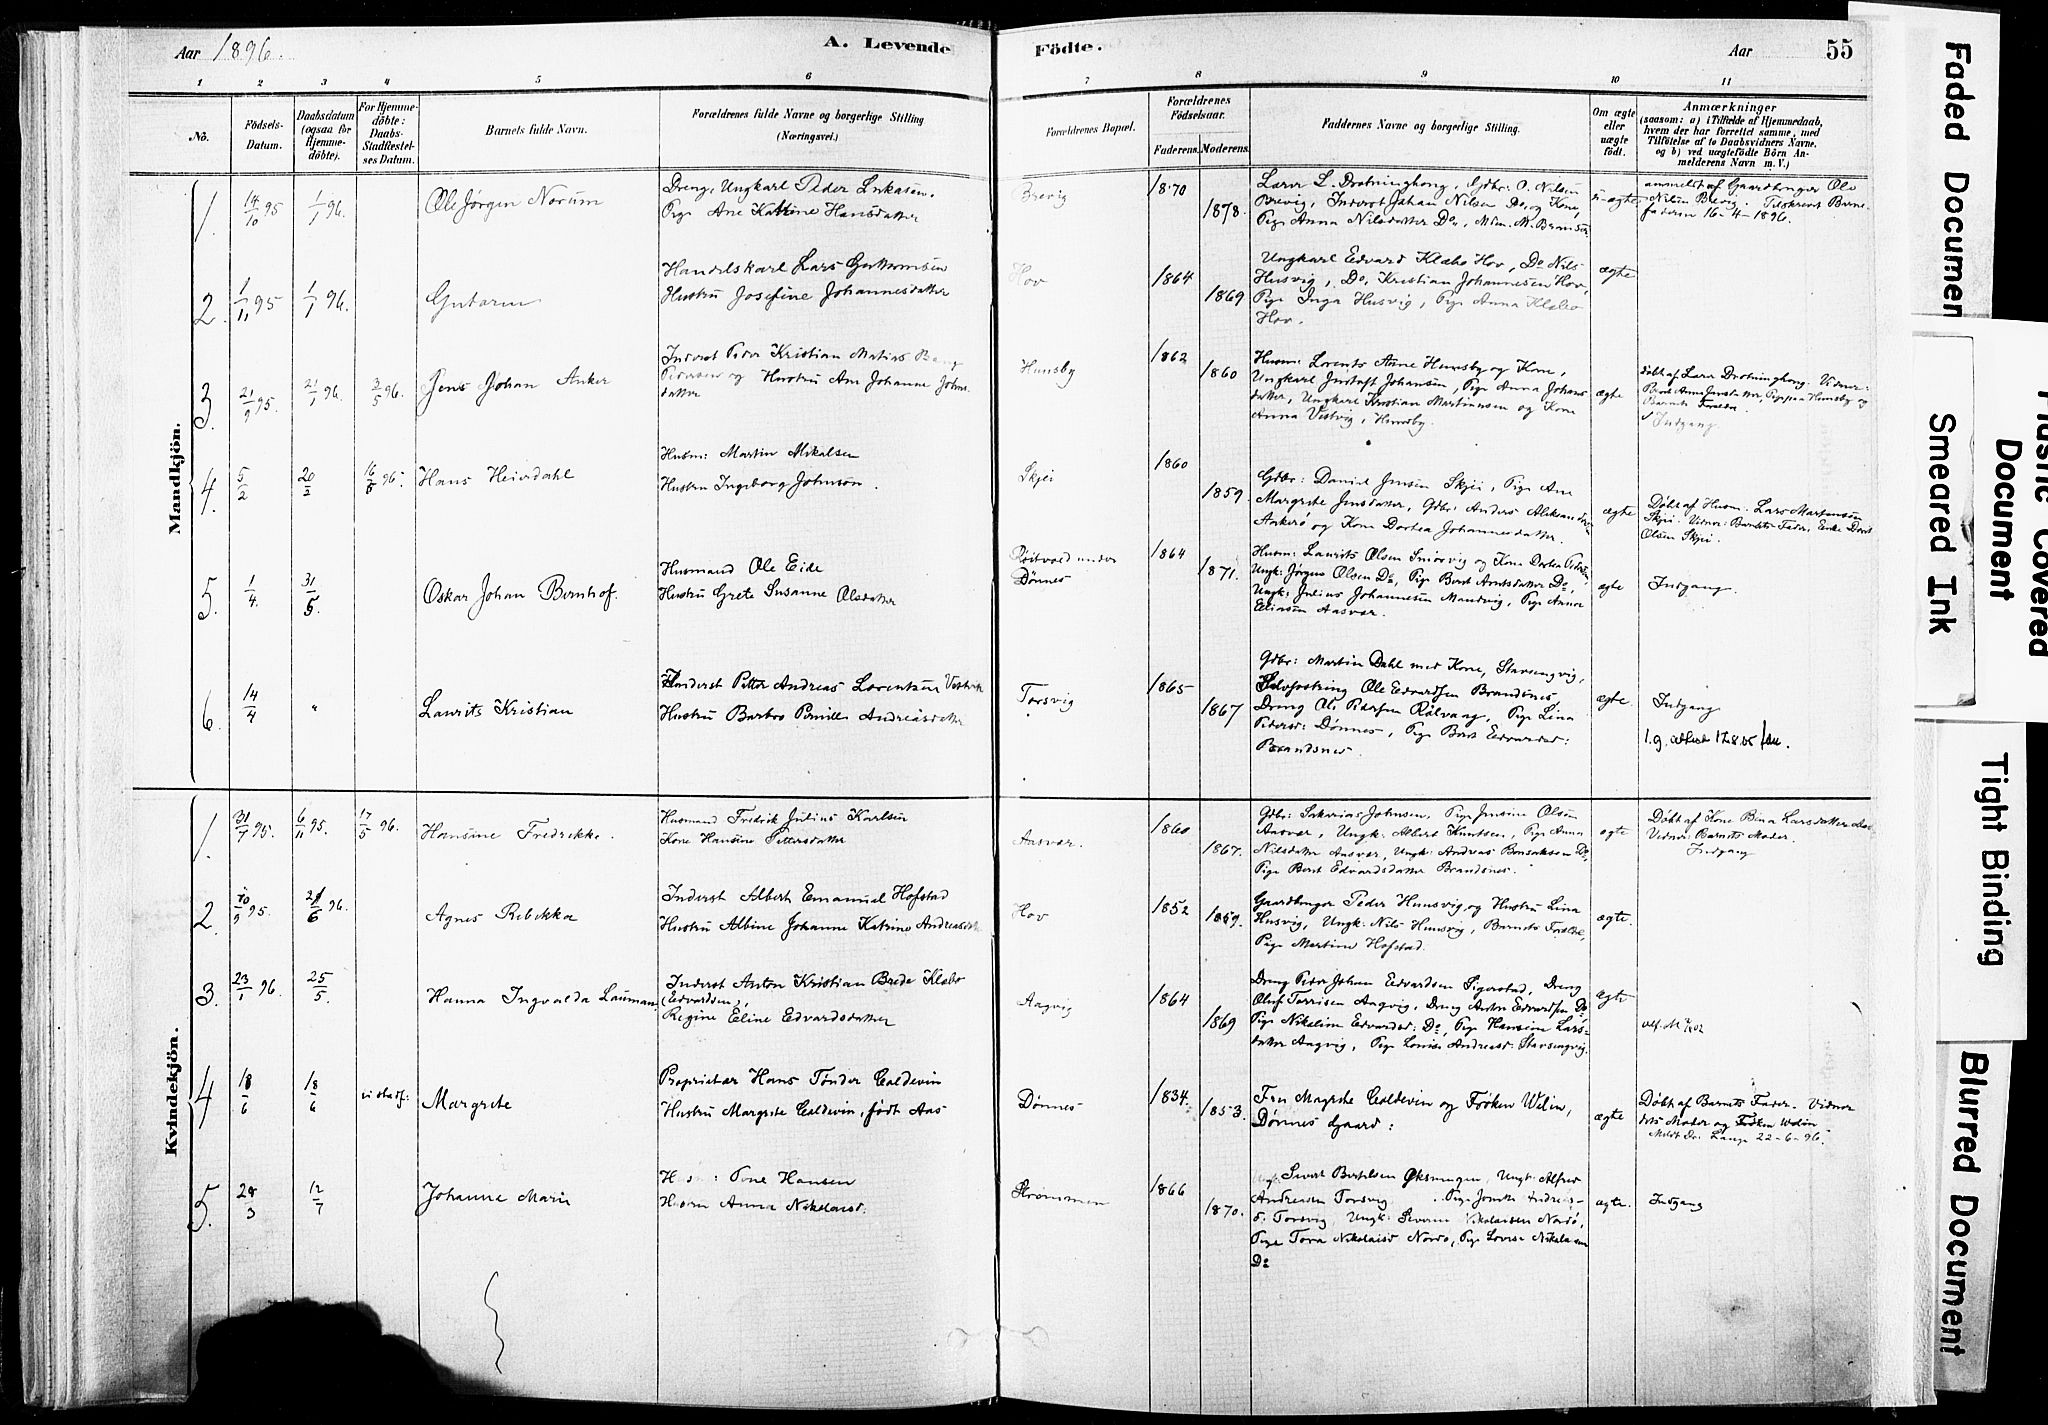 Aar 1896. A. Levende
Födte. Aar 55
1 2 3 4 5 6
7 8 9 10 11
Nô.
Födsels-
Datum.
Daabsdatum
(ogsaa for
Hjemme-
döbte).
For Hjemme-
döbte:
Daabs-
Stadfæstel-
ses Datum.
Barnets fulde Navn.
Forældrenes fulde Navne og borgerlige Stilling
(Næringsvei.)
Forældrenes Bopæl.
Forældrenes
Födselsaar.
Faderens. Moderens.
Faddernes Navne og borgerlige Stilling.
Om ægte
eller
uægte
födt.
Anmærkninger
(saasom: a) i Tilfælde af Hjemmedaab,
hvem der har forrettet samme, med
Tilföielse af to Daabsvidners Navne,
og b) ved uægtefödte Börn An-
melderens Navn m. V.)
Mandkjön.
1. 14/10 95 1/1 96. Ole Jørgen Norum
Dreng, Ungkarl Peder Lukasen.
Pige Ane Katrine Hansdatter
Brevig
1870
1878.
Lærer L. Drotninghaug, Gdbr: O. Nilsen
Brevig, Inderst Johan Nilsen Do, og Kone,
Pige Anna Nilsdatter Do, M. Brands
u-ægte
anmeldt af Gaardbruger Ole
Nilsen Brevig. Tilskrevet Barne-
faderen 16-4-1896.
2. 1/11 95 1/1 96.
Handelskarl Lars Guttormsen
Hustru Josefine Johannesdatter
Hov
1864
1869
Ungkarl Edvard Klabo Hov, Do Nils
Husvig, Do, Kristian Johannesen Hov,
Pige Inga Husvig, Pige Anna Klabo
Hov.
ægte
3. 21/9 95. 21/1 96. 3/5 96. Jens Johan Anker
Inderst Peder Kristian Matias
Pedersen og Hustru Ane Johanne Johns
datter
Hunsby
1862
1860
Husm: Lorents Anne Hunsby og Kone,
Ungkarl Gustaft Johansen, Pige Anna Johans
datter, Ungkarl Kristian Martinusen og Kone
Anna Vestvig, Hunsby.
ægte
døbt af Lærer Drotninghaug. Vidner:
Barnets Forældre.
Indgang
4. 5/2 20/3 16/6 96. Hans Heirdahl
Husm: Martin Mikalsen
Hustru Ingeborg Johnsen.
Skjei
1860
1859.
Gdbr: Daniel Jensen Skjei, Pige Ane
Margrete Jensdatter, Gdbr: Anders Aleksandersen
Aakerø og Kone Dortea Johannesdatter.
ægte
Døbt af Husm. Lars Martensen
Skjei. Vidner: Barnets Fader, Enke
Olsen Skjei.
5. 1/4 31/5. Oskar Johan Bernhof.
Husmand Ole Eide
Hustru Grete Susanne Olsdatter
under
Dønnes
1864
1871.
Husm: Laurits Olsen og Kone Dortea
Ungk: Jørgen Olsen Do, Pige Berit Arntsdatter Do,
Ungk: Julius Johannesen Mandvig, Pige Anna
Eliasen Aasvær.
ægte
Indgang.
6. 14/4 " Laurits Kristian
Inderst Petter Andreas Lorentsen
Hustru Barbro Pernille Andreasdatter
Torsvig
1865
1867
Gdbr: Martin Dahl med Kone, Stavsengvig,
Ole Edvardsen Brandsnes,
Dreng Ole Pedersen Rølvaag, Pige Lina
Pedersd: Dønnes, Pige Berit Edvardsd:
Brandsnes.
ægte.
Indgang
Kvindekjön.
1. 31/7 95. 6/11 95. 17/5 96. Hansine Fredrikke.
Husmand Fredrik Julius Karlsen
Kone Hansine Pettersdatter
Aasvær.
1860
1867.
Gdbr: Sakarias Johnsen, Pige Jensine Olsen
Aasvær, Ungk: Albert Knutsen, Pige Anna
Nilsdatter Aasvær, Ungk: Andreas Bonsaksen Do,
Pige Berit Edvardsdatter Brandsnes.
ægte
Døbt af Kone Bina Larsdatter
Vidner: Barnets Moder.
Indgang
2. 10/9 95. 21/6 96. Agnes Rebekka
Inderst Albert Emanuel Hofstad
Hustru Albine Johanne Katrine Andreasdatter
Hov
1852
1859.
Gaardbruger Peder Hunsvig og Hustru Lina
Husvig, Ungk: Nils Hunsvig, Barnets Forældre,
Pige Martine Hofstad.
ægte.
3. 23/1 96. 25/5. Hanna Ingvalda Lauman
Inderst Anton Kristian Brede Klabo
(Edvardsen),
Regine Eline Edvardsdatter
Aagvig
1864
1869
Dreng Peder Johan Edvardsen Sigerstad, Dreng
Oluf Torrisen Aagvig, Dreng Anton Edvardsen Do,
Pige Nikoline Edvardsd: Do, Pige Hansine Lars-
datter Aagvig, Pige Lovise Andreasd: Stavsengvig.
ægte
4 18/6 18/6 Margrete
Proprietær Hans Tønder Coldevin
Hustru Margrete Coldevin, født Aas
Dønnes
1834.
1853.
Fru Magrete Coldevin og Frøken Welin,
Dønnes Gaard:
ægte
Døbt af Barnets Fader. Vidner
dets Moder og Frøken Welin.
Meldt Dr. Lange 22-6-96.
5. 28/3 12/7 Johanne Marie
Tone Hansen
Hustru Anna Nikolaisd.
Strømmen
1866
1870.
Sivert Bertelsen Øksningen, Ungk: Alfred
Andreasen Torsvig, Pige
Torsvig, Ungk: Severin Nikolaisen Nordø,
Pige Tora Nikolaisd Nordø, Pige Lovise
Do
ægte.
Indgang
Faded Document
Smeared Ink
Document
Covered
Tight Binding
Blurred Document